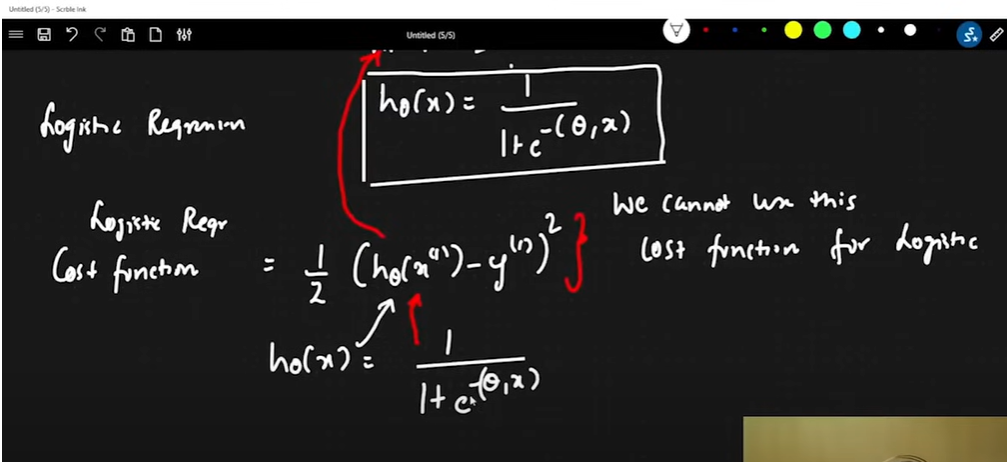 Untitled (5/5) - Scrble Ink
Untitled (5/5)
hθ(x) = 1 / 1 + e^-(θ,x)
Logistic Regression
Logistic Regr
Cost function = 1/2 (hθ(x^(i)) - y^(i))^2 }
We cannot use this
Cost function for Logistic
hθ(x) = 1 / 1 + e^-(θ,x)